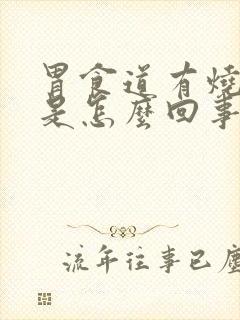 胃食道有燒
是怎麼回事
流年往事已塵